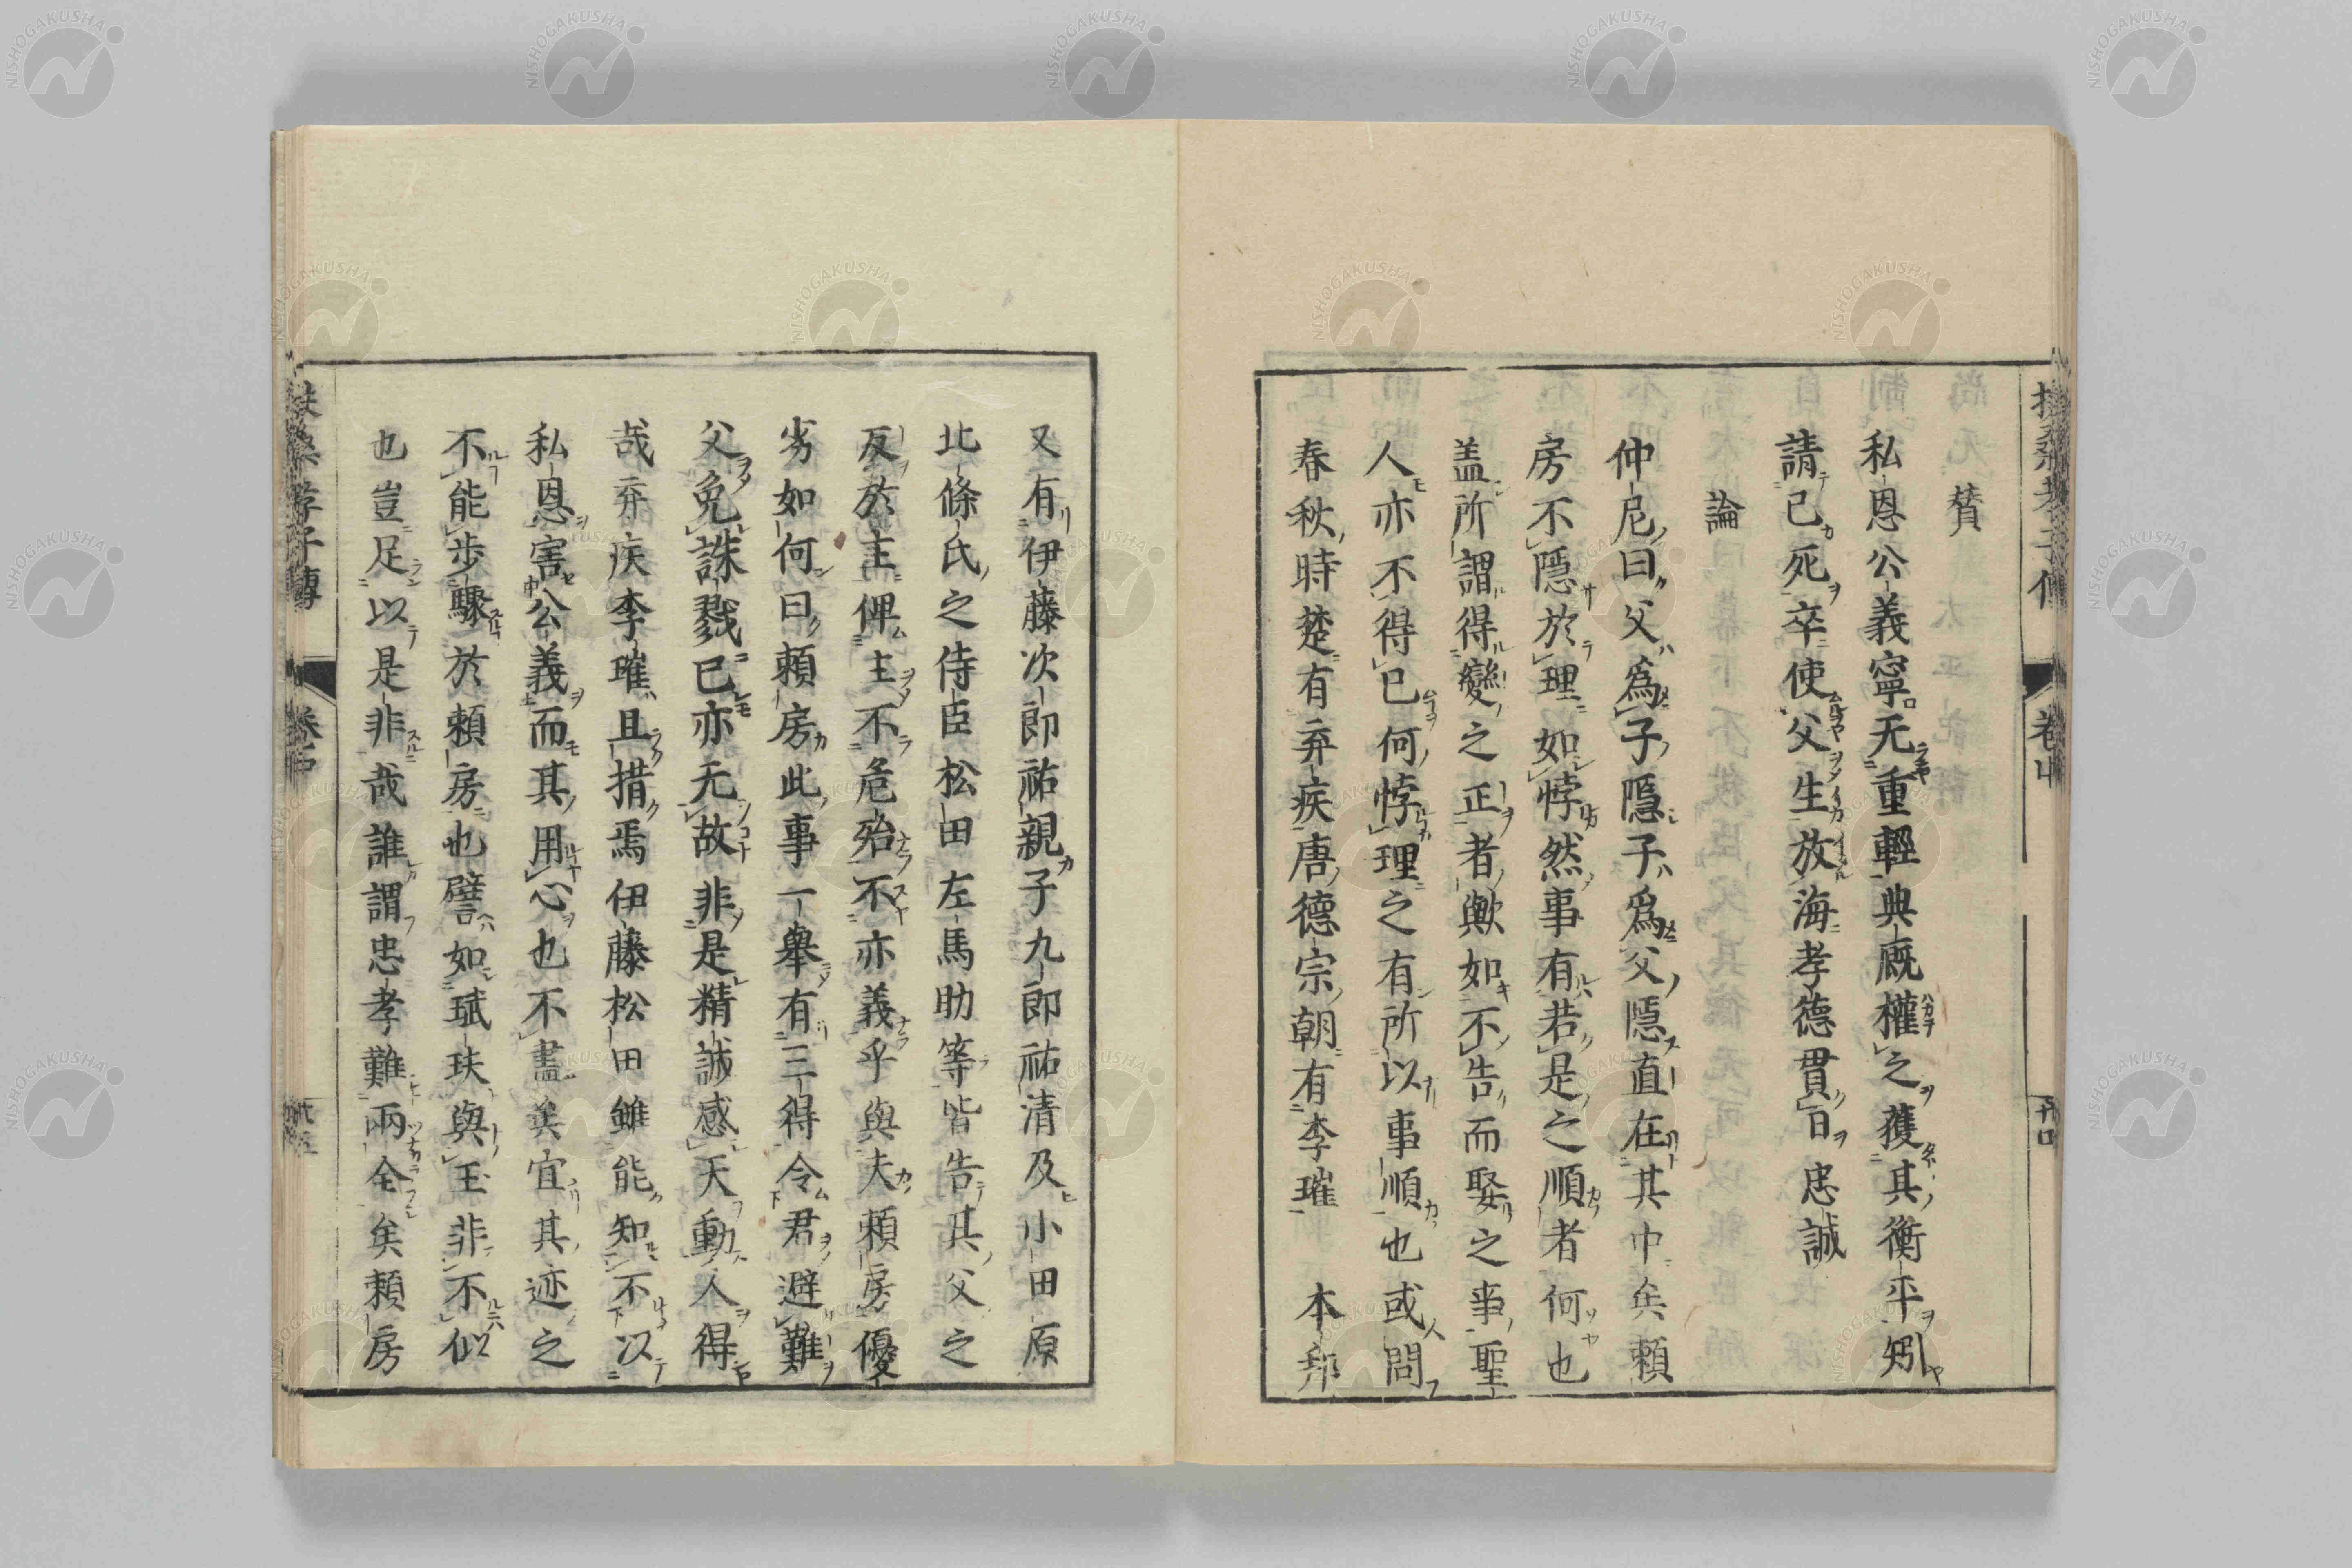 賛
私恩公義寧无重輕典厩權之獲其衡平矧
請己死卒使父生放海孝德貫日忠誠
論
仲尼曰父爲子隱子爲父隱直在其中矣賴
房不隱於理如悖然事有若是之順者何也
盖所謂得變之正者歟如不告而娶之事聖
人亦不得已何悖理之有所以事順也或問
春秋時楚有弃疾唐德宗朝有李璀 本邦
又有伊藤次郎祐親子九郎祐清及小田原
北條氏之侍臣松田左馬助等皆告其父之
反於主俾主不危殆不亦義乎與夫賴房優
劣如何曰賴房此事一舉有三得令君避難
父免誅戮已亦无故非是精誠感天動人得
哉弃疾李璀且措焉伊藤松田雖能知不以
私恩害公義而其用心也不盡矣宜其迹之
不能步驟於賴房也譬如珷玞與玉非不似
也豈足以是非哉誰謂忠孝難兩全矣賴房
扶桑孝子傳 卷中
NISHOGAKUSHA